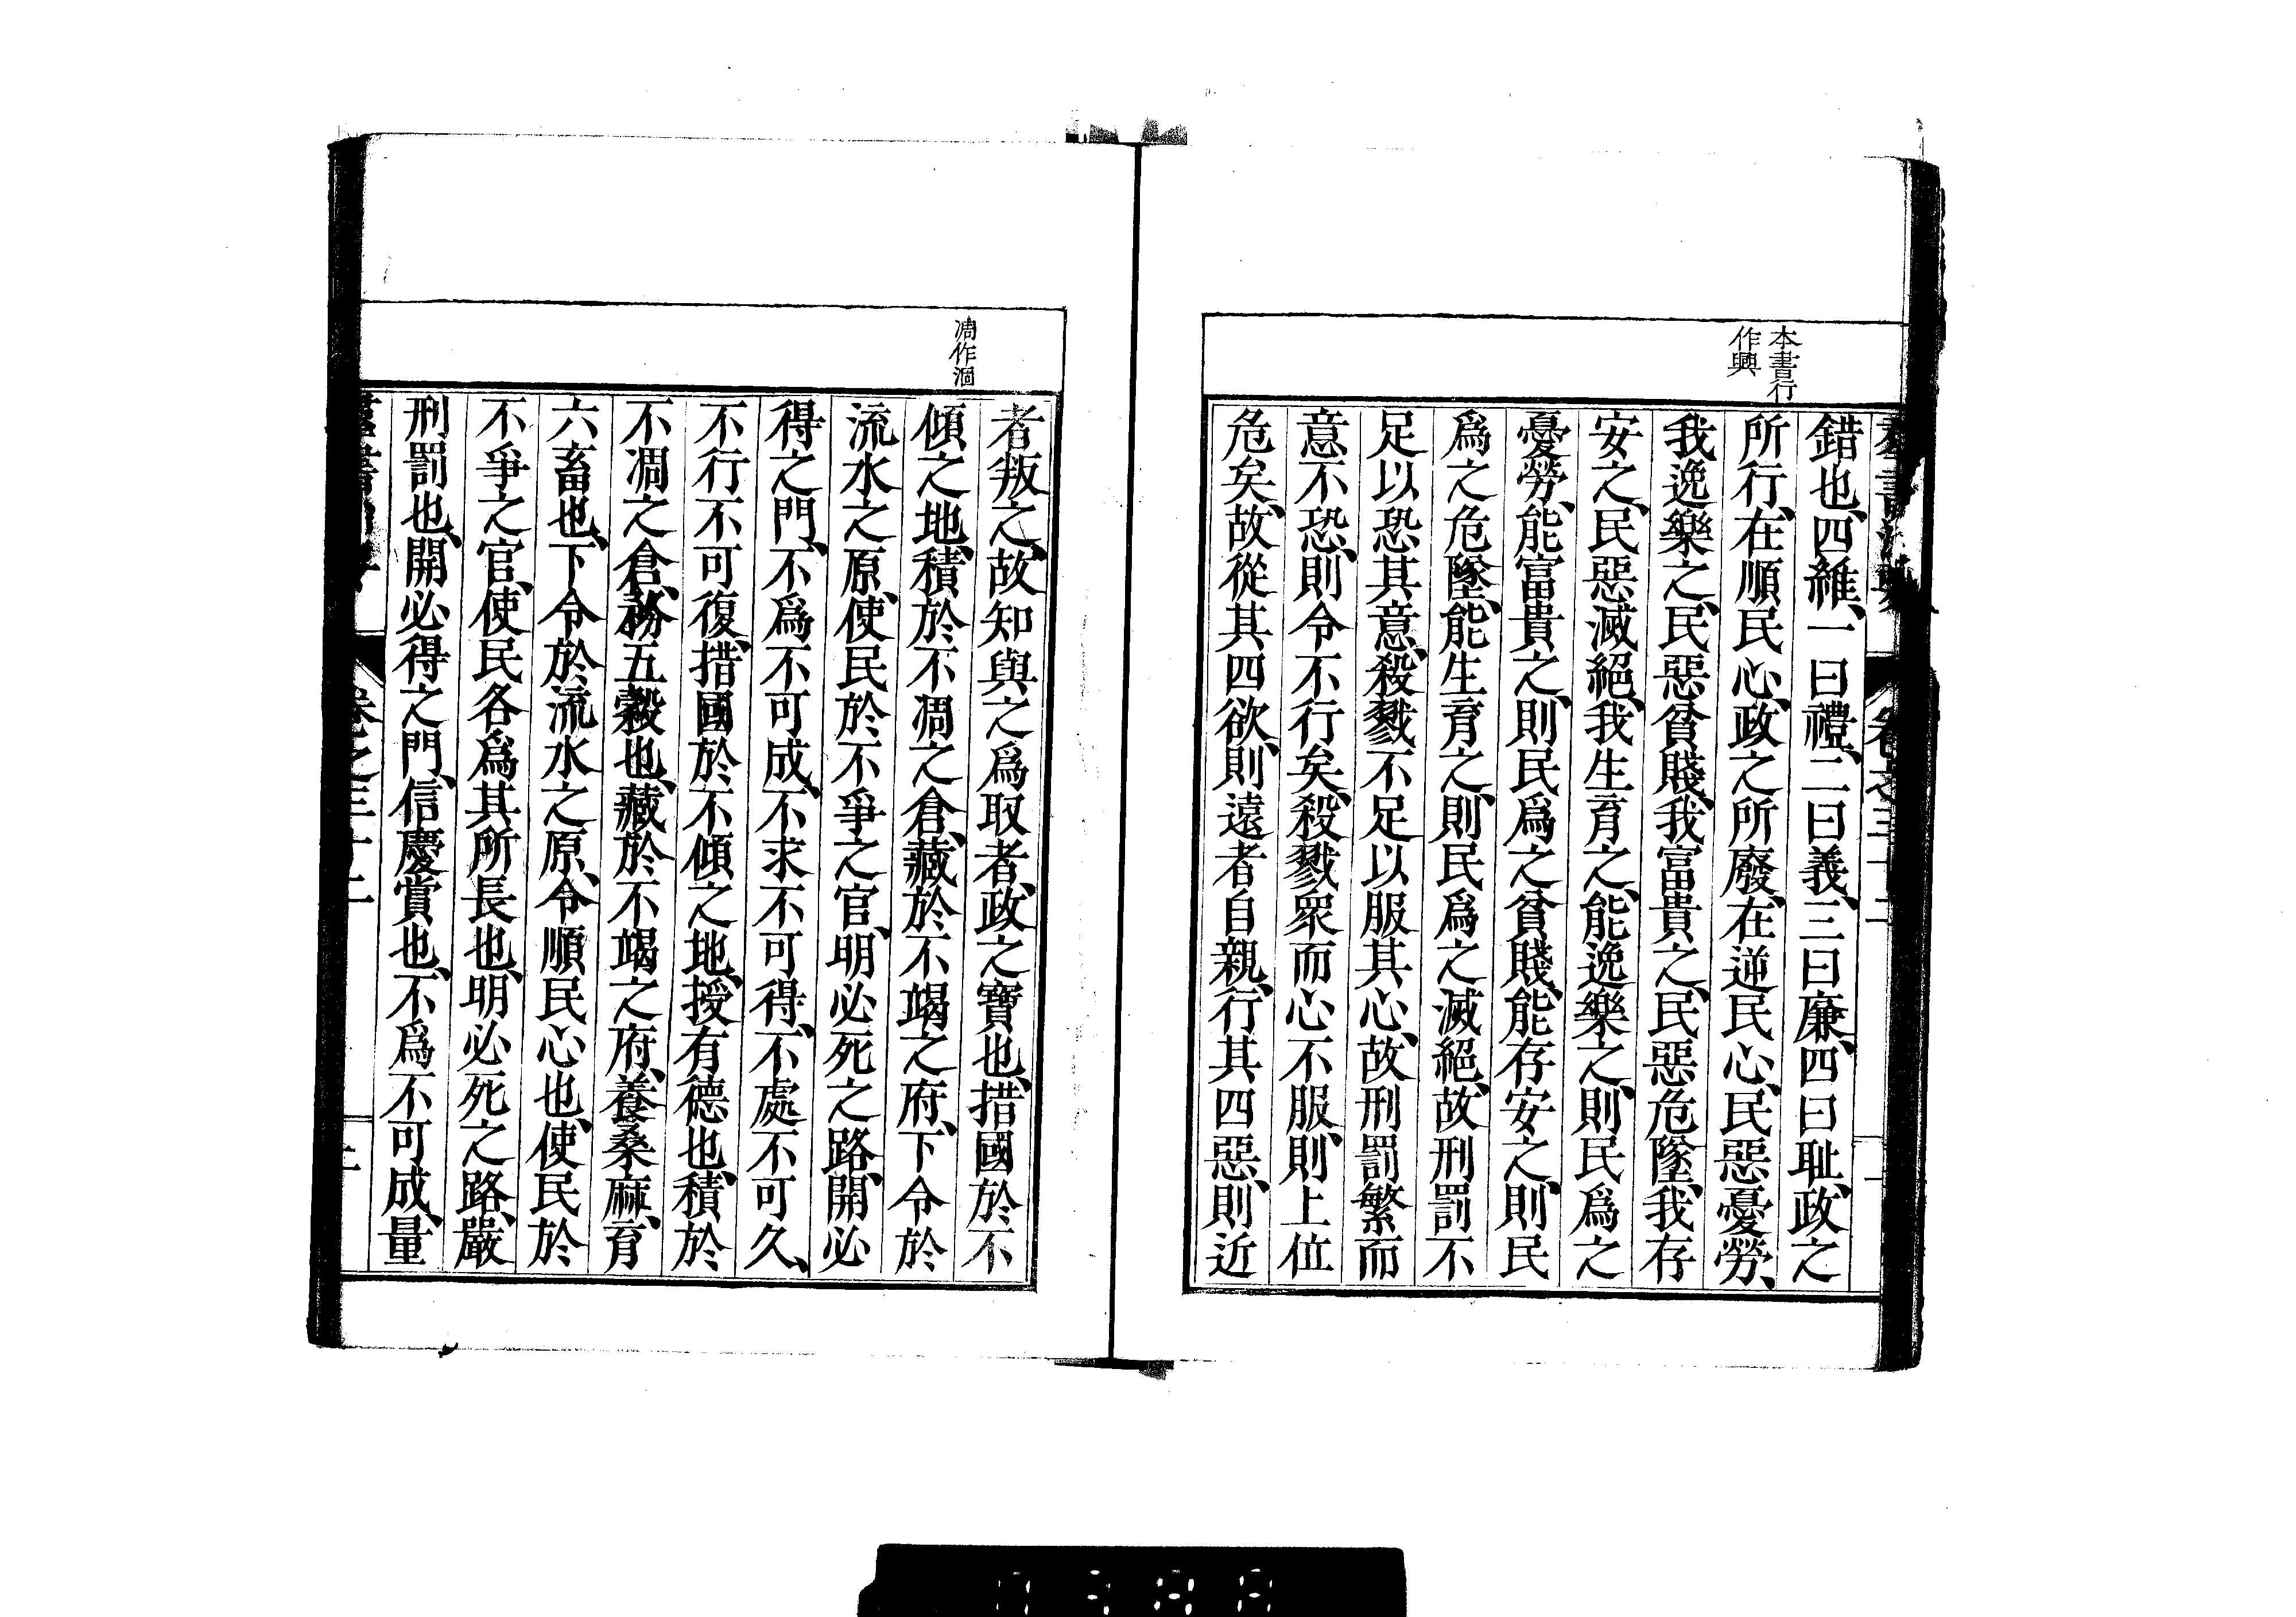 本書行
作興
錯也、四維、一曰禮、二曰義、三曰廉、四曰耻、政之
所行、在順民心、政之所廢、在逆民心、民惡憂勞、
我逸樂之、民惡貧賤、我富貴之、民惡危墜、我存
安之、民惡滅絕、我生育之、能逸樂之、則民爲之
憂勞、能富貴之、則民爲之貧賤、能存安之、則民
爲之危墜、能生育之、則民爲之滅絕、故刑罰不
足以恐其意、殺戮不足以服其心、故刑罰繁而
意不恐、則令不行矣、殺戮衆而心不服、則上位
危矣、故從其四欲、則遠者自親、行其四惡、則近
凋作涸
者叛之、故知與之爲取者、政之寶也、措國於不
傾之地、積於不凋之倉、藏於不竭之府、下令於
流水之原、使民於不爭之官、明必死之路、開必
得之門、不爲不可成、不求不可得、不處不可久、
不行不可復、措國於不傾之地、授有德也、積於
不凋之倉、務五穀也、藏於不竭之府、養桑麻、育
六畜也、下令於流水之原、令順民心也、使民於
不爭之官、使民各爲其所長也、明必死之路、嚴
刑罰也、開必得之門、信慶賞也、不爲不可成、量
卷之三十二